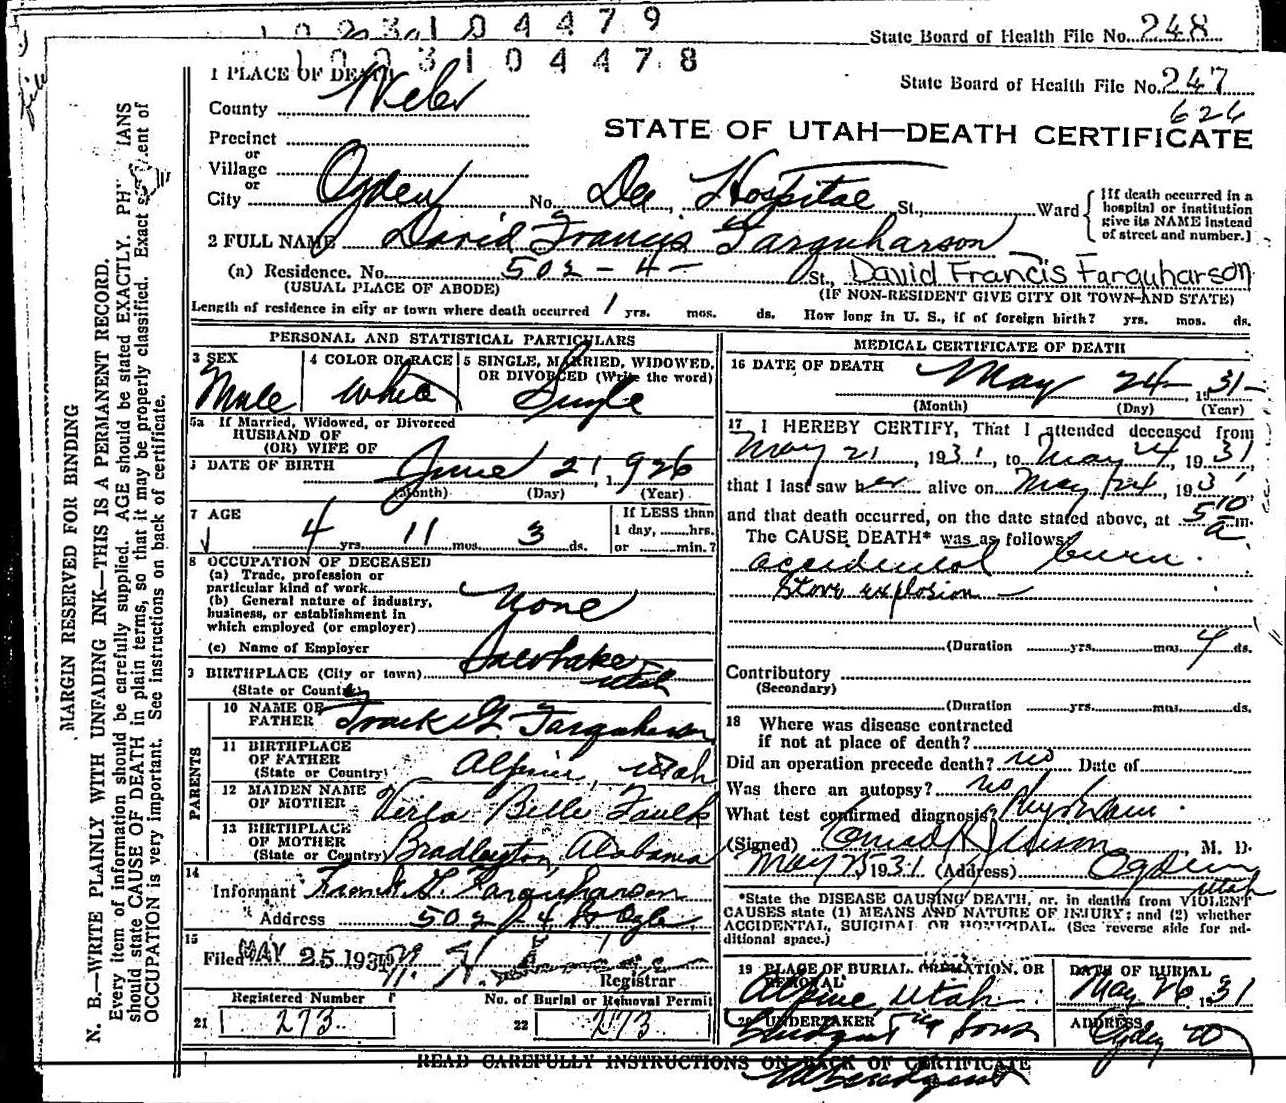 1 0 2 3 1 0 4 4 7 9
State Board of Health File No. 248
1 0 0 2 3 1 0 4 4 7 8
1 PLACE OF DEATH
State Board of Health File No. 247
County Weber
626
STATE OF UTAH—DEATH CERTIFICATE
Precinct
or
Village
or
City Ogden No. Dee Hospital St., Ward
[If death occurred in a hospital or institution give its NAME instead of street and number.]
2 FULL NAME David Francis Farquharson
(a) Residence. No. 502 - 4 - St., David Francis Farquharson
(USUAL PLACE OF ABODE) (IF NON-RESIDENT GIVE CITY OR TOWN AND STATE)
Length of residence in city or town where death occurred 1 yrs. mos. ds. How long in U. S., if of foreign birth? yrs. mos. ds.
PERSONAL AND STATISTICAL PARTICULARS
3 SEX Male
4 COLOR OR RACE White
5 SINGLE, MARRIED, WIDOWED, OR DIVORCED (Write the word) Single
5a If Married, Widowed, or Divorced
HUSBAND OF
(OR) WIFE OF
DATE OF BIRTH June 21, 1926
(Month) (Day) (Year)
7 AGE 4 yrs. 11 mos. 3 ds.
If LESS than
1 day, hrs.
or min.?
8 OCCUPATION OF DECEASED
(a) Trade, profession or
particular kind of work
(b) General nature of industry,
business, or establishment in
which employed (or employer) None
(c) Name of Employer
BIRTHPLACE (City or town)
(State or Country) Utah
PARENTS
10 NAME OF FATHER Frank G. Farquharson
11 BIRTHPLACE OF FATHER (State or Country) Alpine, Utah
12 MAIDEN NAME OF MOTHER Verla Belle Faulk
13 BIRTHPLACE OF MOTHER (State or Country) Alabama
14
Informant Frank G. Farquharson
Address 502 4 St Ogden
15
Filed MAY 25 1931 W. H.
Registrar
Registered Number
21 273
No. of Burial or Removal Permit
22 273
MEDICAL CERTIFICATE OF DEATH
16 DATE OF DEATH May 24 1931
(Month) (Day) (Year)
17 I HEREBY CERTIFY, That I attended deceased from
May 21, 1931, to May 24, 1931,
that I last saw her alive on May 24, 1931
and that death occurred, on the date stated above, at 5 10 a m.
The CAUSE DEATH* was as follows:
accidental burn.
Stove explosion
(Duration yrs. mos. 4 ds.
Contributory
(Secondary)
(Duration yrs. mos. ds.
18 Where was disease contracted
if not at place of death?
Did an operation precede death? no Date of
Was there an autopsy? no
What test confirmed diagnosis?
(Signed) Conrad H. Jenson, M. D.
May 25 1931 (Address) Ogden
Utah
*State the DISEASE CAUSING DEATH, or, in deaths from VIOLENT
CAUSES state (1) MEANS AND NATURE OF INJURY; and (2) whether
ACCIDENTAL, SUICIDAL OR HOMICIDAL. (See reverse side for ad-
ditional space.)
19 PLACE OF BURIAL, CREMATION, OR REMOVAL
Alpine, Utah
DATE OF BURIAL
May 26 1931
20 UNDERTAKER
Lindquist & Sons
ADDRESS
Ogden U
READ CAREFULLY INSTRUCTIONS ON BACK OF CERTIFICATE
MARGIN RESERVED FOR BINDING
N. B.—WRITE PLAINLY WITH UNFADING INK—THIS IS A PERMANENT RECORD.
Every item of information should be carefully supplied. AGE should be stated EXACTLY. PH IANS
should state CAUSE OF DEATH in plain terms, so that it may be properly classified. Exact ent of
OCCUPATION is very important. See instructions on back of certificate.